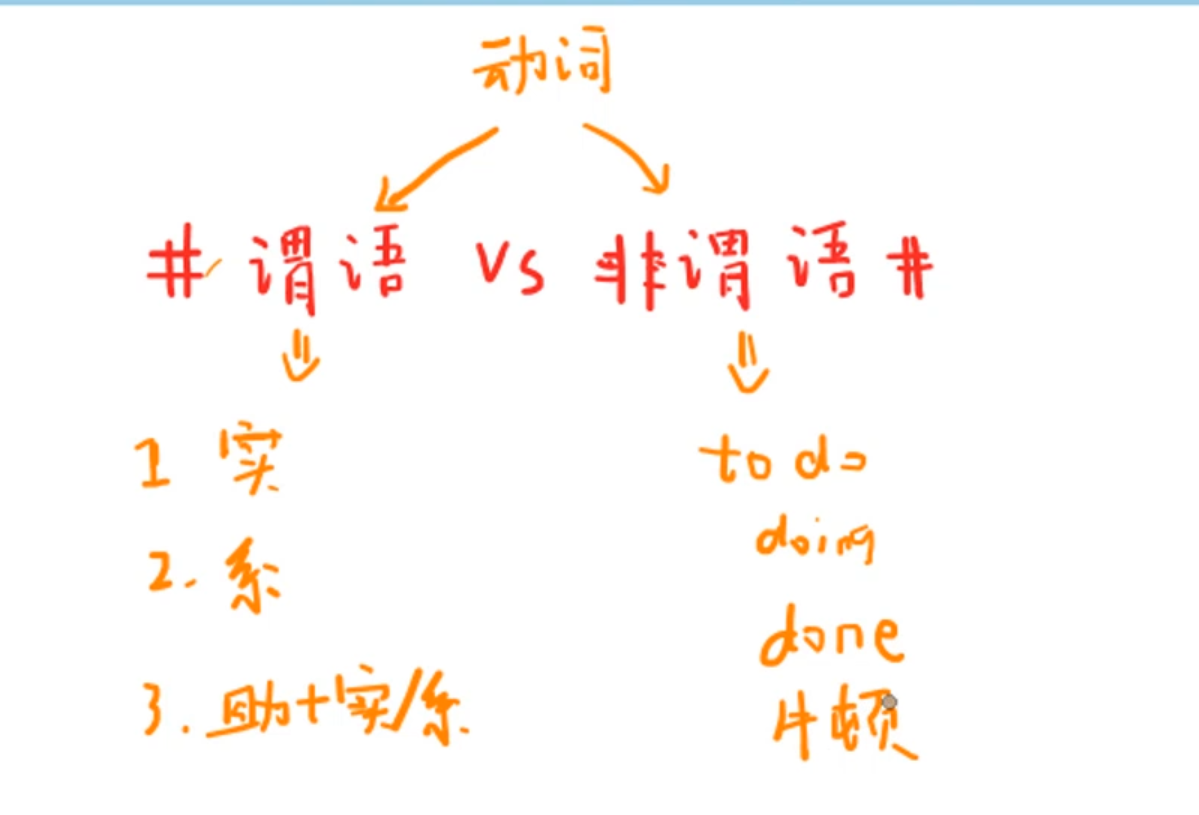 动词
# 谓语 vs 非谓语 #
1 实
2. 系
3. 助+实/系
to do
doing
done
牛顿